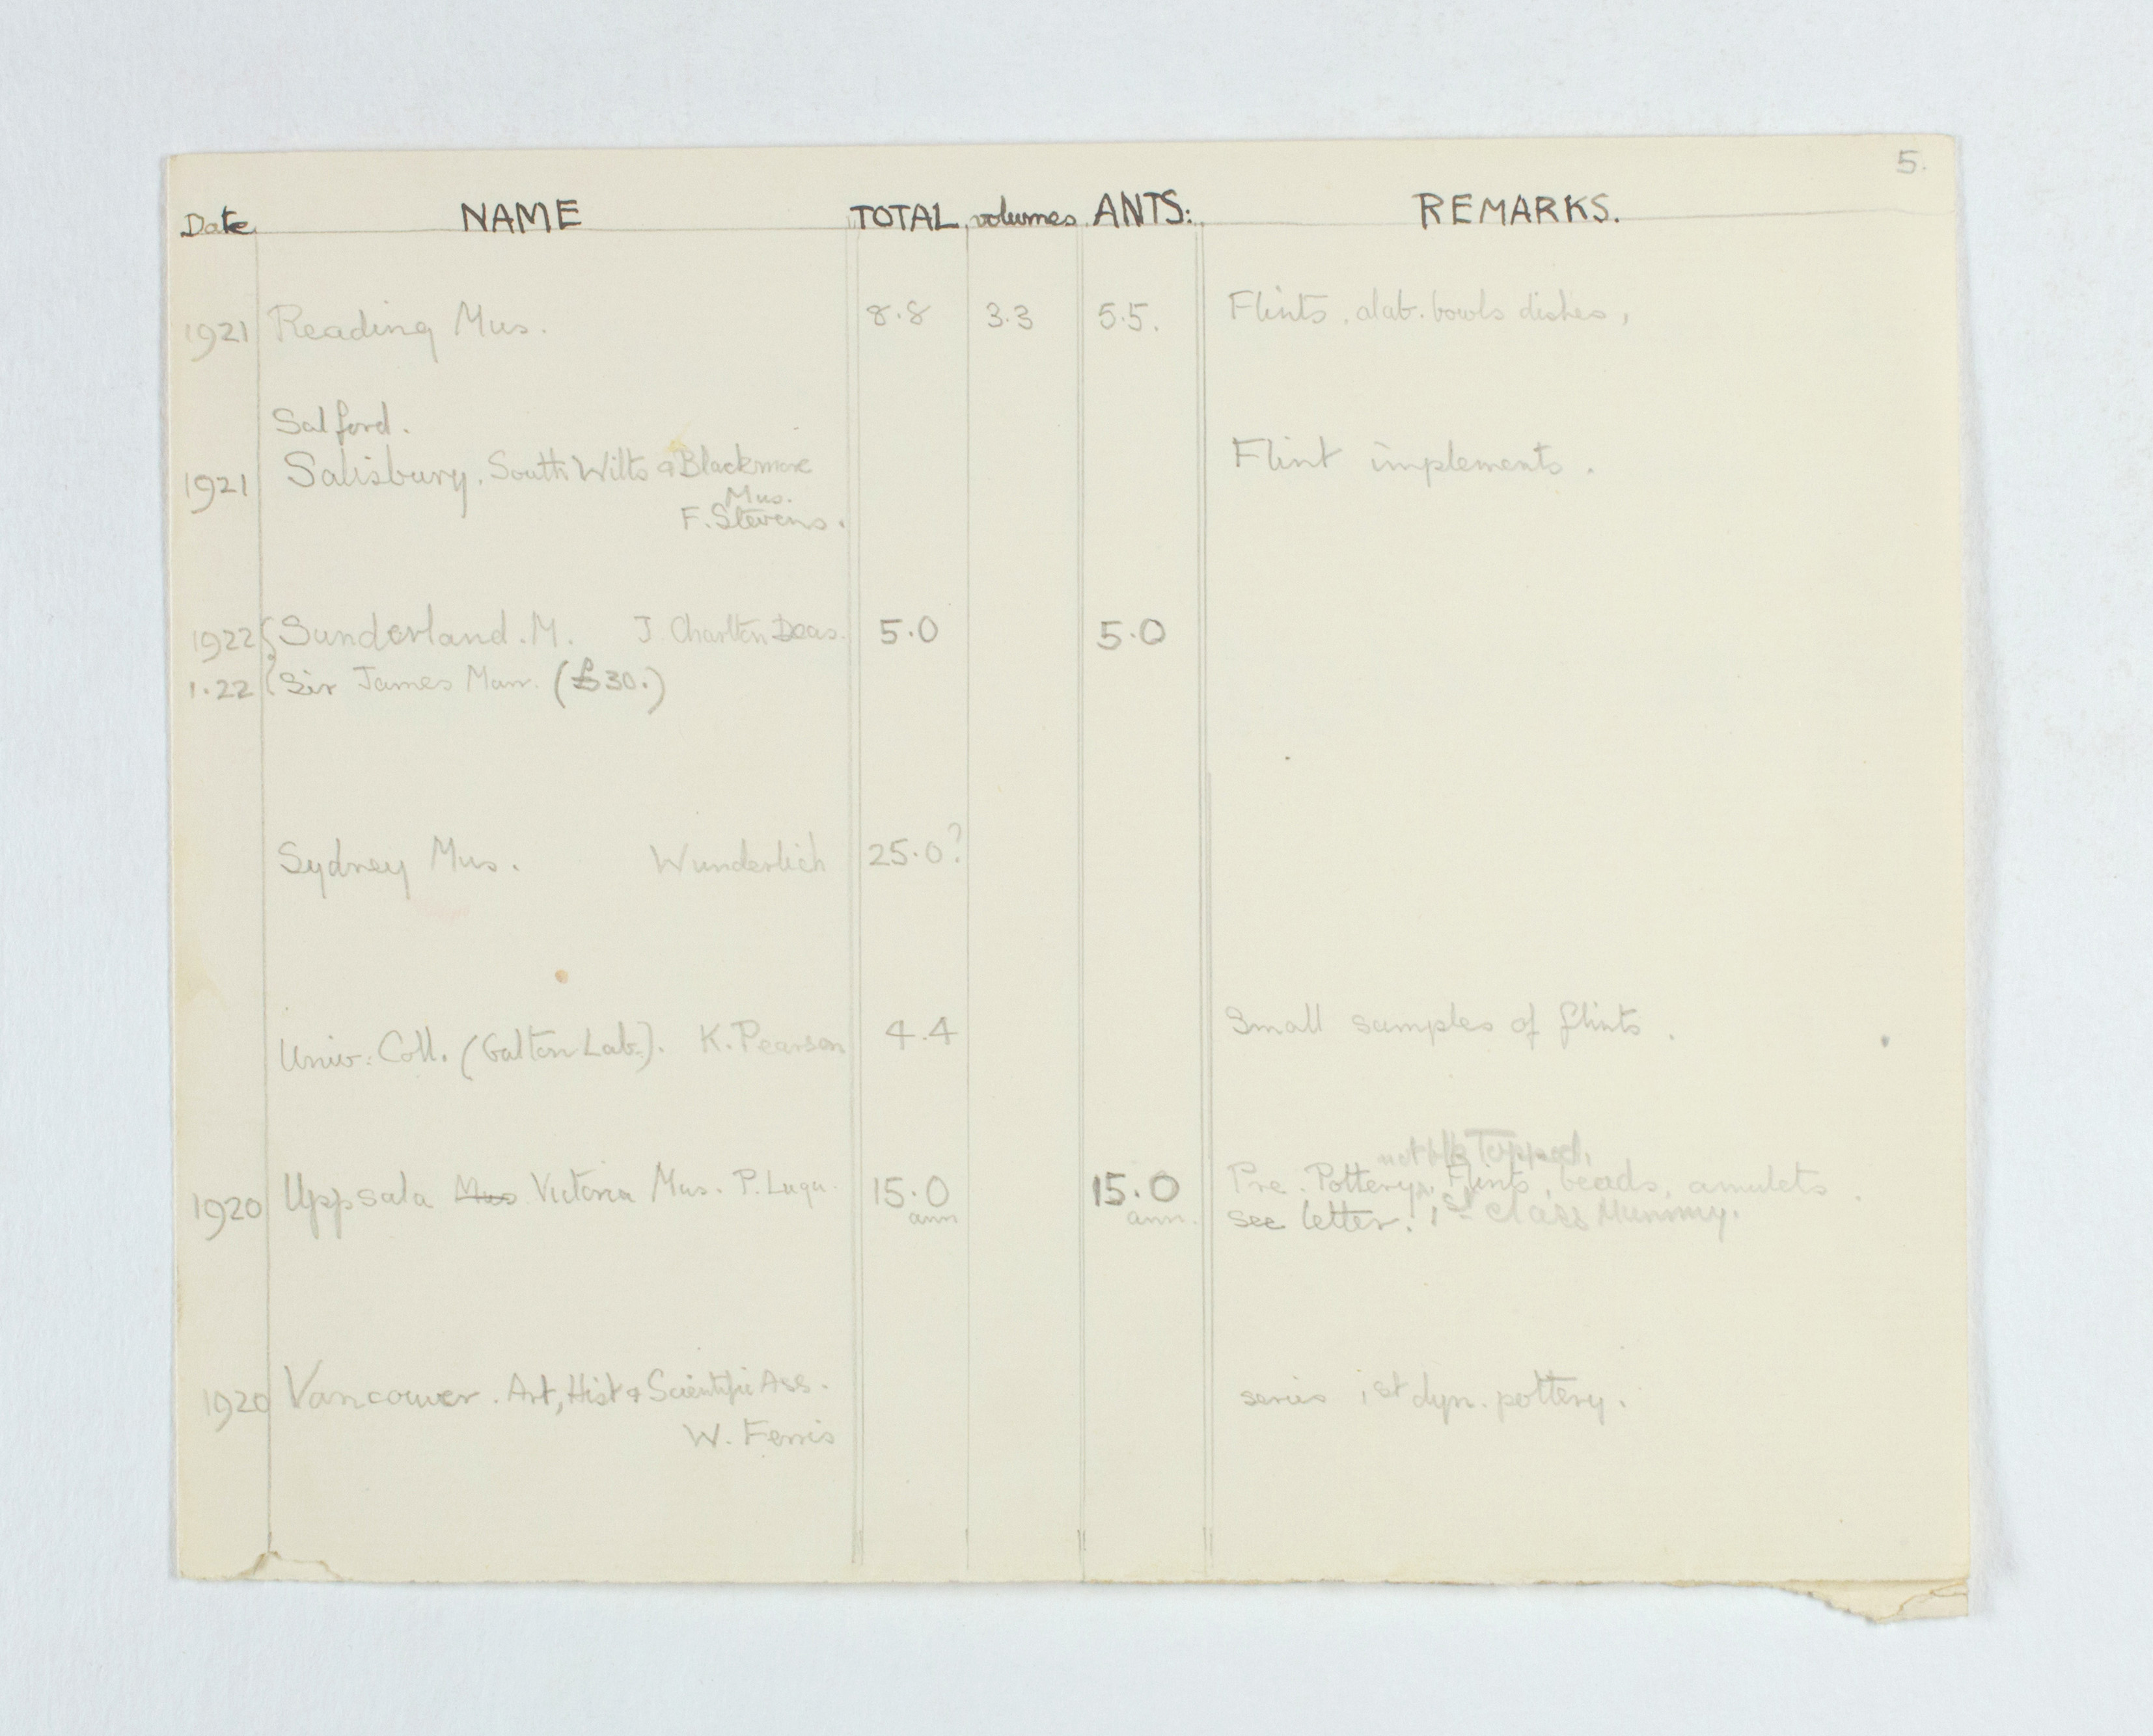 5.
Date NAME TOTAL volumes ANTS: REMARKS.
1921 Reading Mus. 8.8 3.3 5.5. Flints, alab. bowls dishes,
Salford.
1921 Salisbury. South Wilts & Blackmore Flint implements.
Mus.
F. Stevens.
1922 Sunderland. M. J Charlton Deas. 5.0 5.0
1.22 Sir James Marr. (£30.)
Sydney Mus. Wunderlich 25.0?
Univ: Coll. (Galton Lab.). K. Pearson 4.4 Small samples of flints.
not Topped,
1920 Uppsala Mus Victoria Mus. P. Lugu. 15.0 15.0 Pre. Pottery, Flints, beads, amulets.
ann ann. see letter. 1st class Mummy.
1920 Vancouver. Art, Hist & Scientific Ass. series 1st dyn. pottery.
W. Ferris